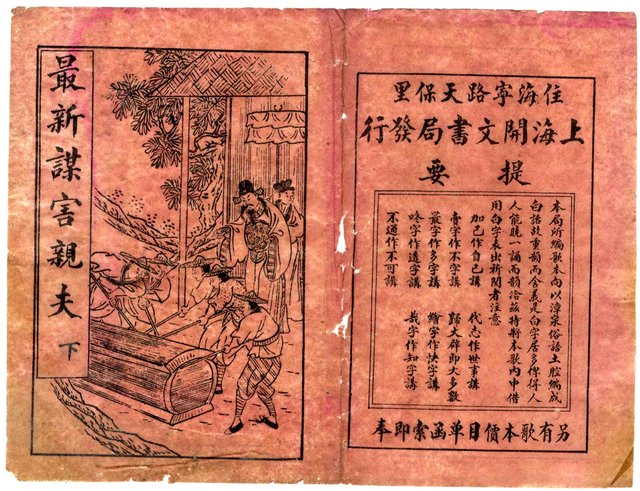 最新謀害親夫 下
住海寧路天保里
上海開文書局發行
提要
本局所編歌本向以漳泉俗語土腔編成
白話故重韻而舍義是白字居多俾得人
人能曉一誦而韻洽茲特將本歌內中借
用白字表出祈閱者注意
加己作自己講 代志作世事講
字作不字講 歸大碎即大多數
最字作多字講 字作快字講
咚字作字講 栽字作知字講
不通作不可講
另有歌本價目單函索即奉